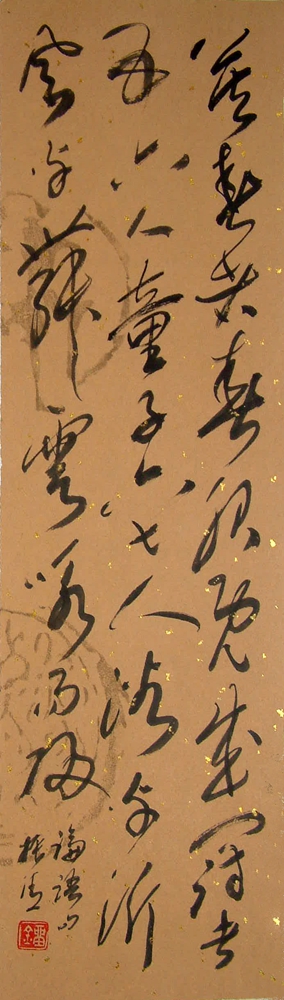 莫春者春服既成冠者
五六人童子六七人浴乎沂
風乎舞雩咏而歸
論語句